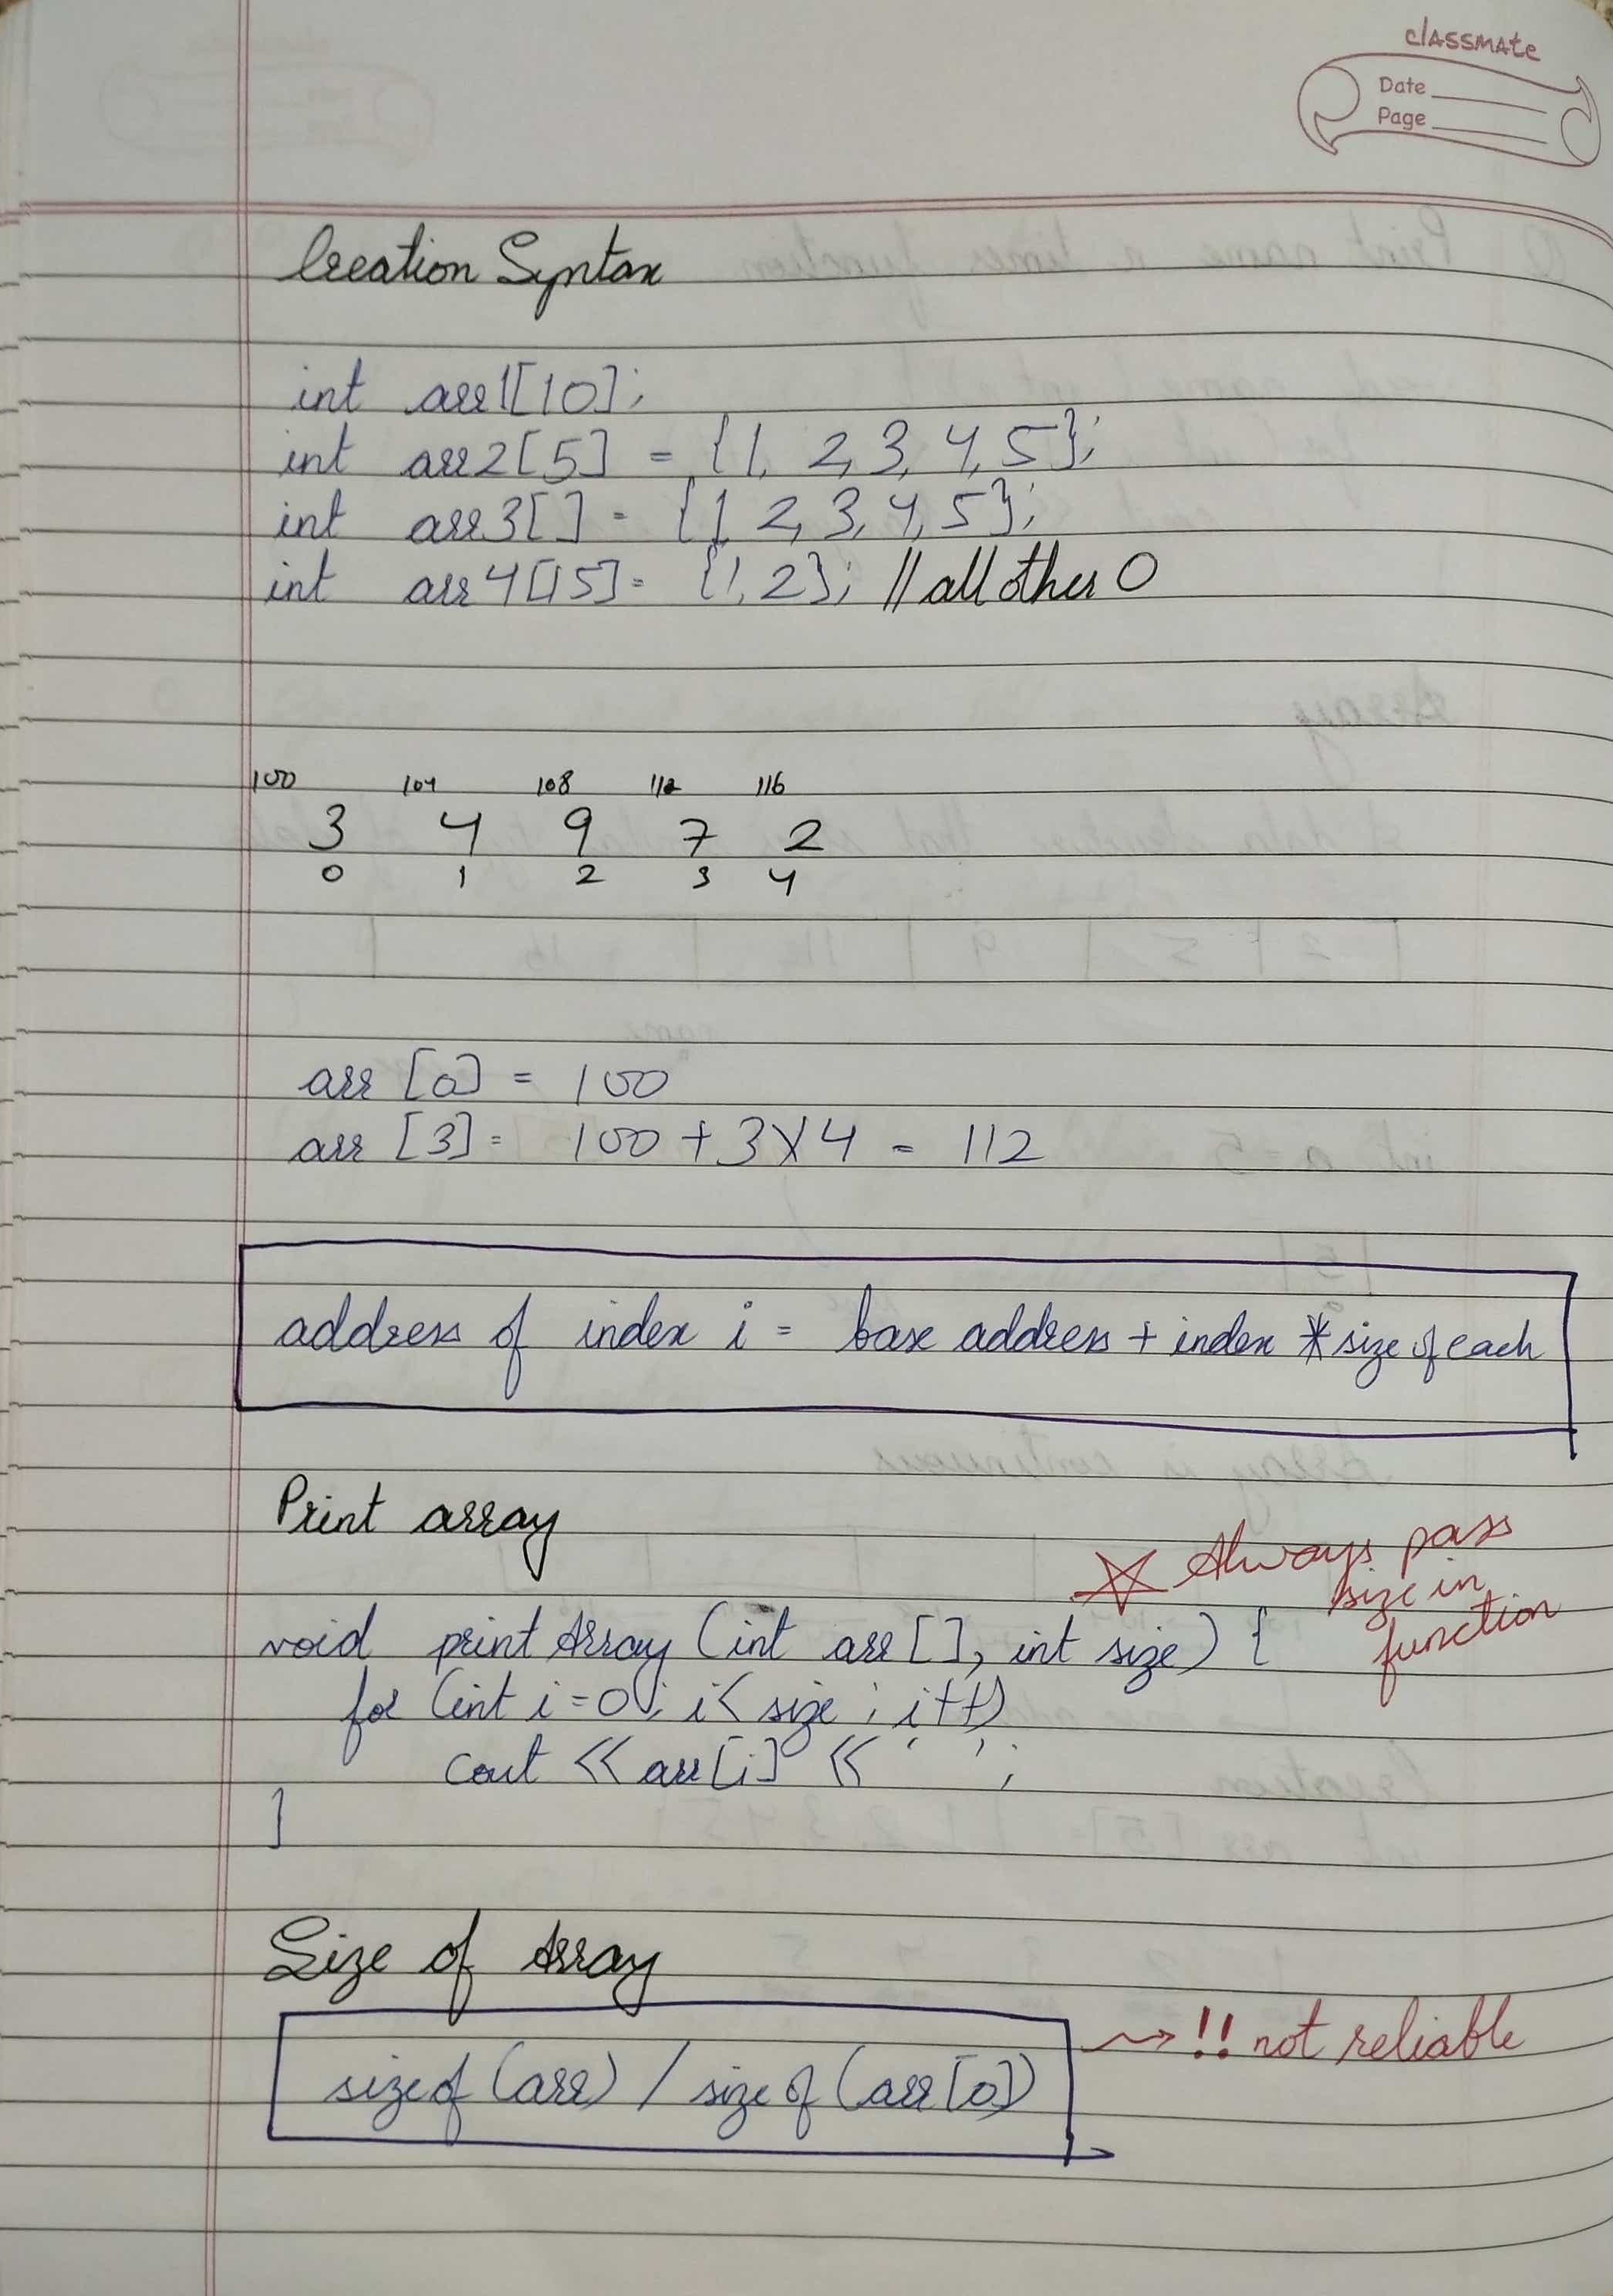 classmate
Date
Page
Creation Syntax
int arr1[10];
int arr2[5] = {1, 2, 3, 4, 5};
int arr3[] = {1, 2, 3, 4, 5};
int arr4[15] = {1, 2}; // all other 0
100 104 108 112 116
3 4 9 7 2
0 1 2 3 4
arr [0] = 100
arr [3] = 100 + 3 X 4 = 112
address of index i = base address + index * size of each
Print array
☆ Always pass
size in
function
void printArray (int arr [], int size) {
for (int i = 0; i < size ; i++)
cout << arr[i] << ' ' ;
}
Size of Array
sizeof (arr) / sizeof (arr[0])
⇝ !! not reliable